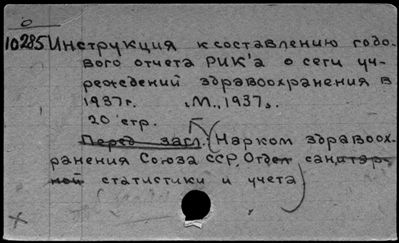 10285 Инструкция к составлению годо-
вого отчета РИК'а о сети уч-
реждений здравоохранения в
1937г. М., 1937.
20 стр.
Перед загл.: (Нарком здравоох-
ранения Союза ССР, Отдел санитар-
ной статистики и учета)